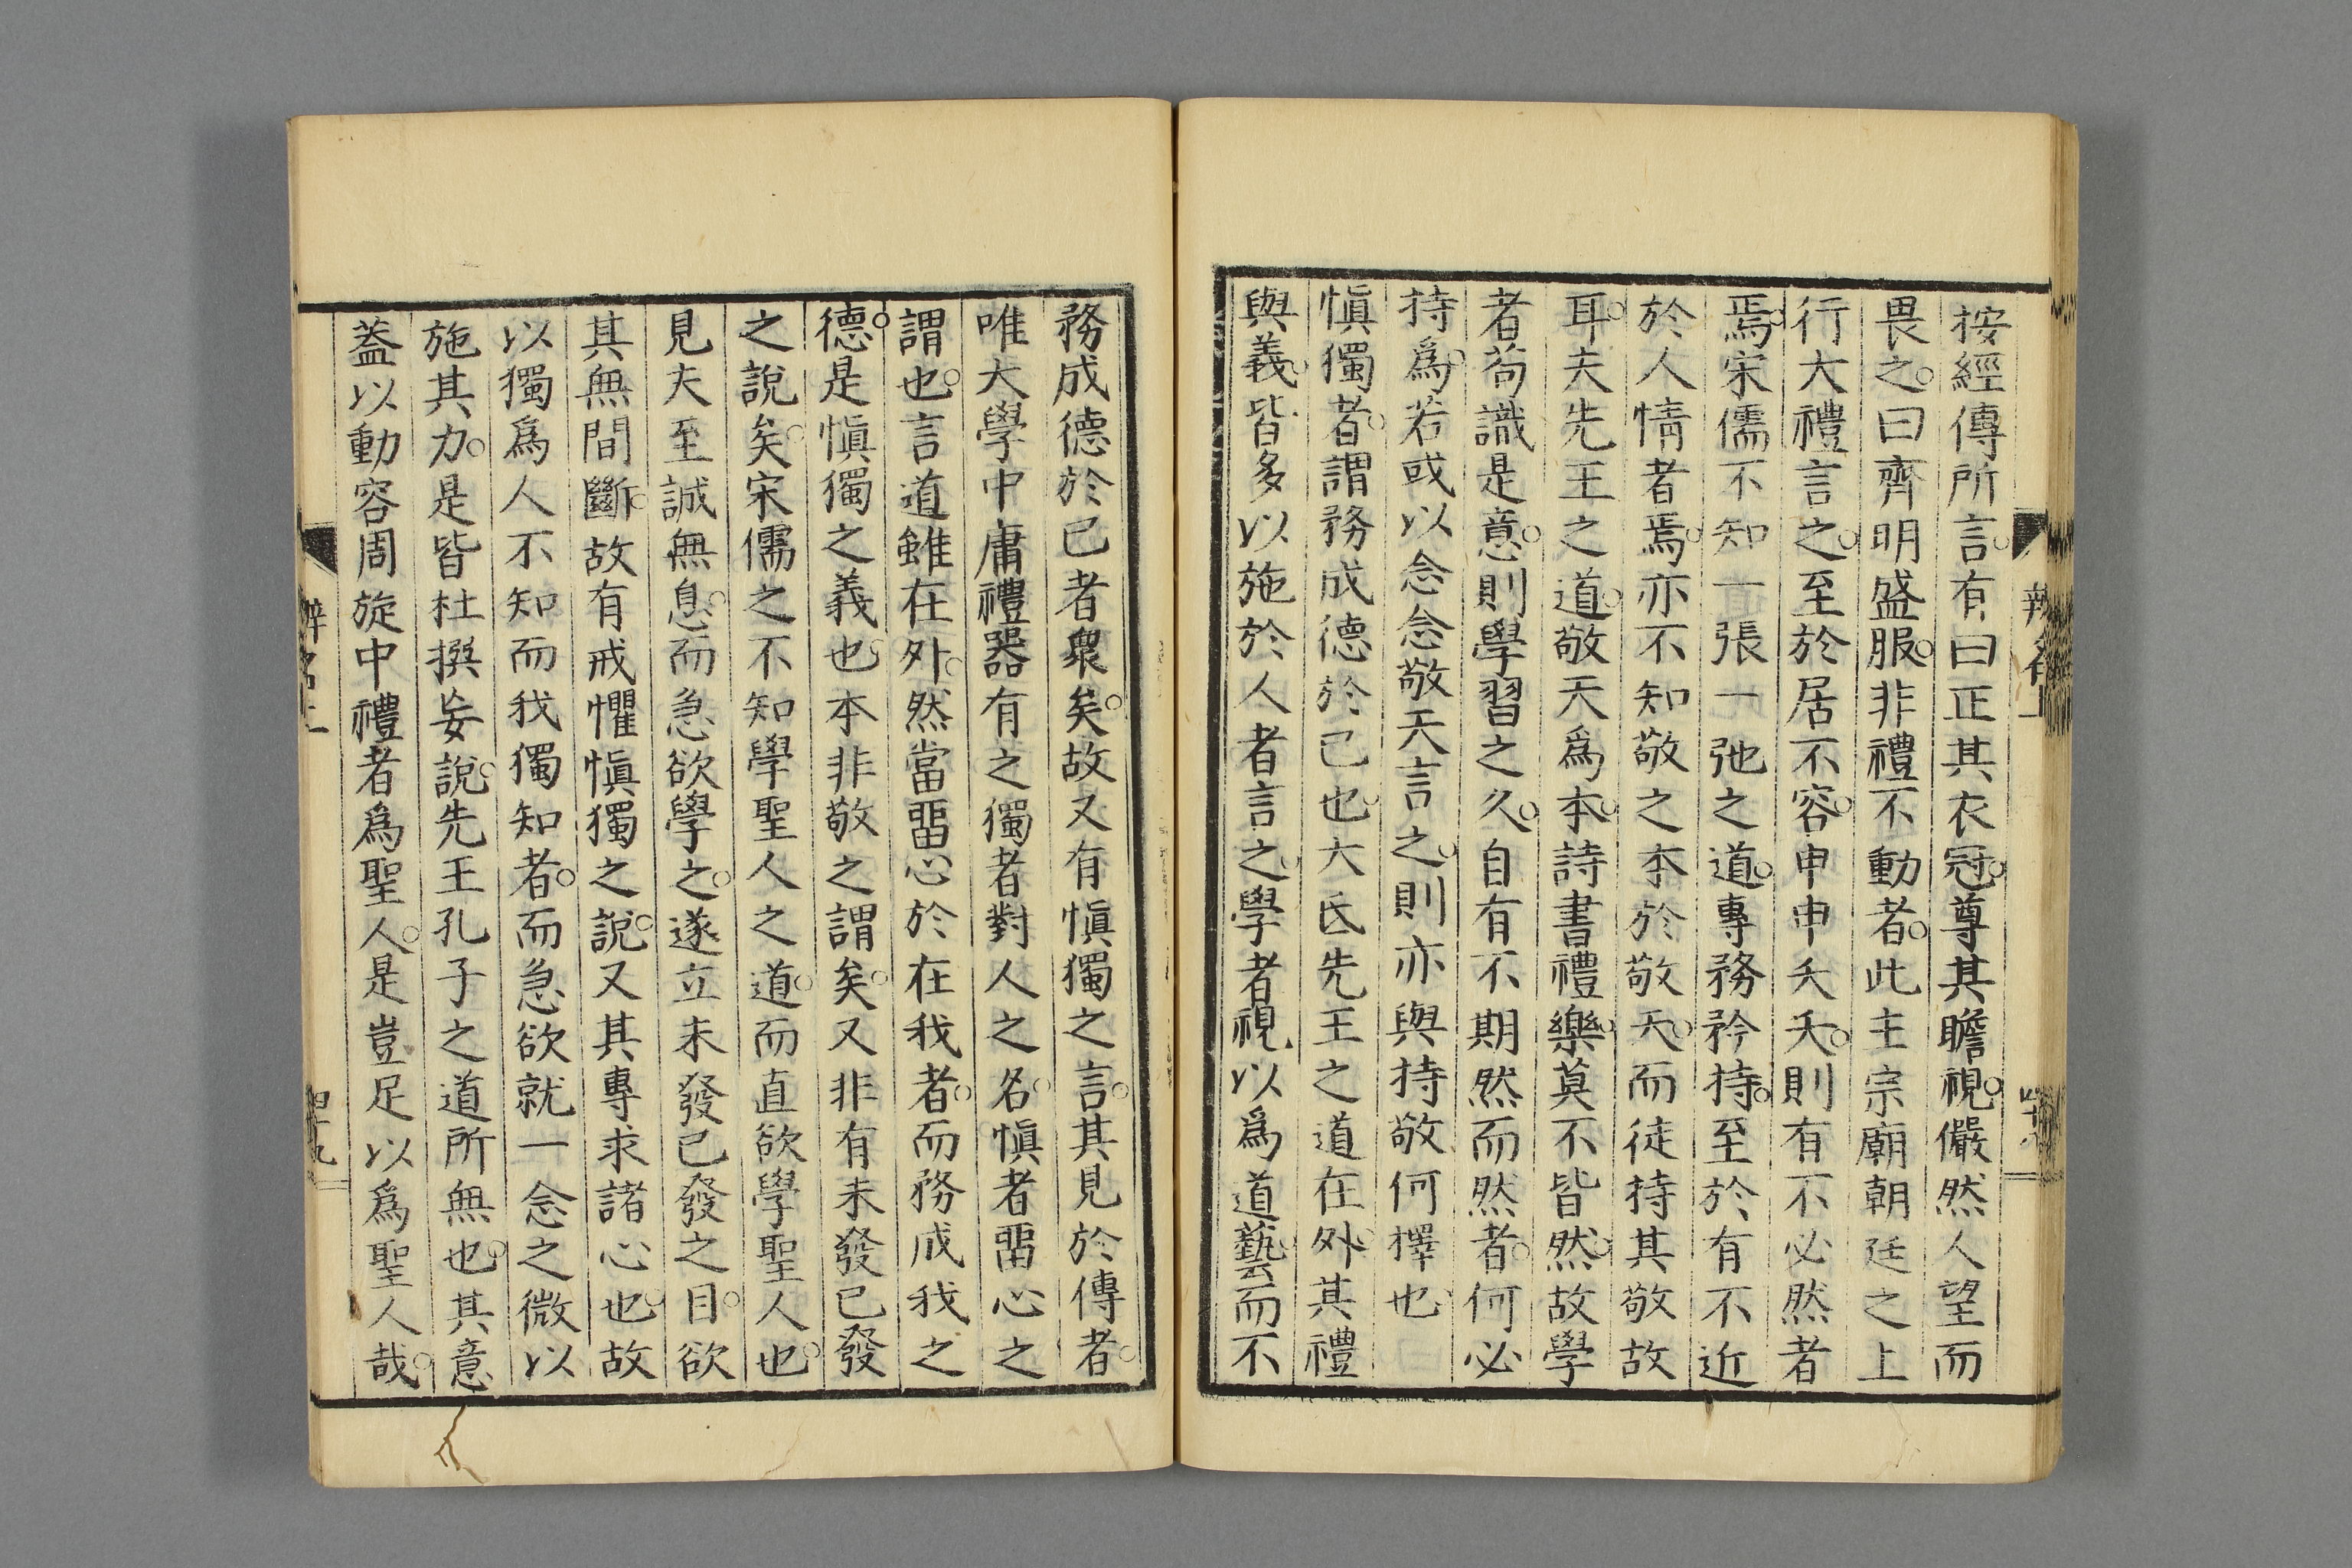 按經傳所言。有曰正其衣冠。尊其瞻視。儼然人望而
畏之。曰齊明盛服。非禮不動者。此主宗廟朝廷之上
行大禮言之。至於居不容。申申夭夭。則有不必然者
焉。宋儒不知一張一弛之道。專務矜持。至於有不近
於人情者焉。亦不知敬之本於敬天。而徒持其敬故
耳。夫先王之道。敬天爲本。詩書禮樂。莫不皆然。故學
者苟識是意。則學習之久。自有不期然而然者。何必
持爲。若或以念念敬天言之。則亦與持敬何擇也
愼獨者。謂務成德於己也。大氐先王之道在外。其禮
與義。皆多以施於人者言之。學者視以爲道藝。而不
務成德於己者衆矣。故又有愼獨之言。其見於傳者。
唯大學中庸禮器有之獨者對人之名。愼者畱心之
謂也。言道雖在外。然當畱心於在我者。而務成我之
德。是愼獨之義也。本非敬之謂矣。又非有未發已發
之說矣。宋儒之不知學聖人之道。而直欲學聖人也。
見夫至誠無息。而急欲學之。遂立未發已發之目。欲
其無間斷。故有戒懼愼獨之說。又其專求諸心也。故
以獨爲人不知而我獨知者。而急欲就一念之微以
施其力。是皆杜撰妄說。先王孔子之道所無也。其意
蓋以動容周旋中禮者爲聖人。是豈足以爲聖人哉。
辨名上
四十九